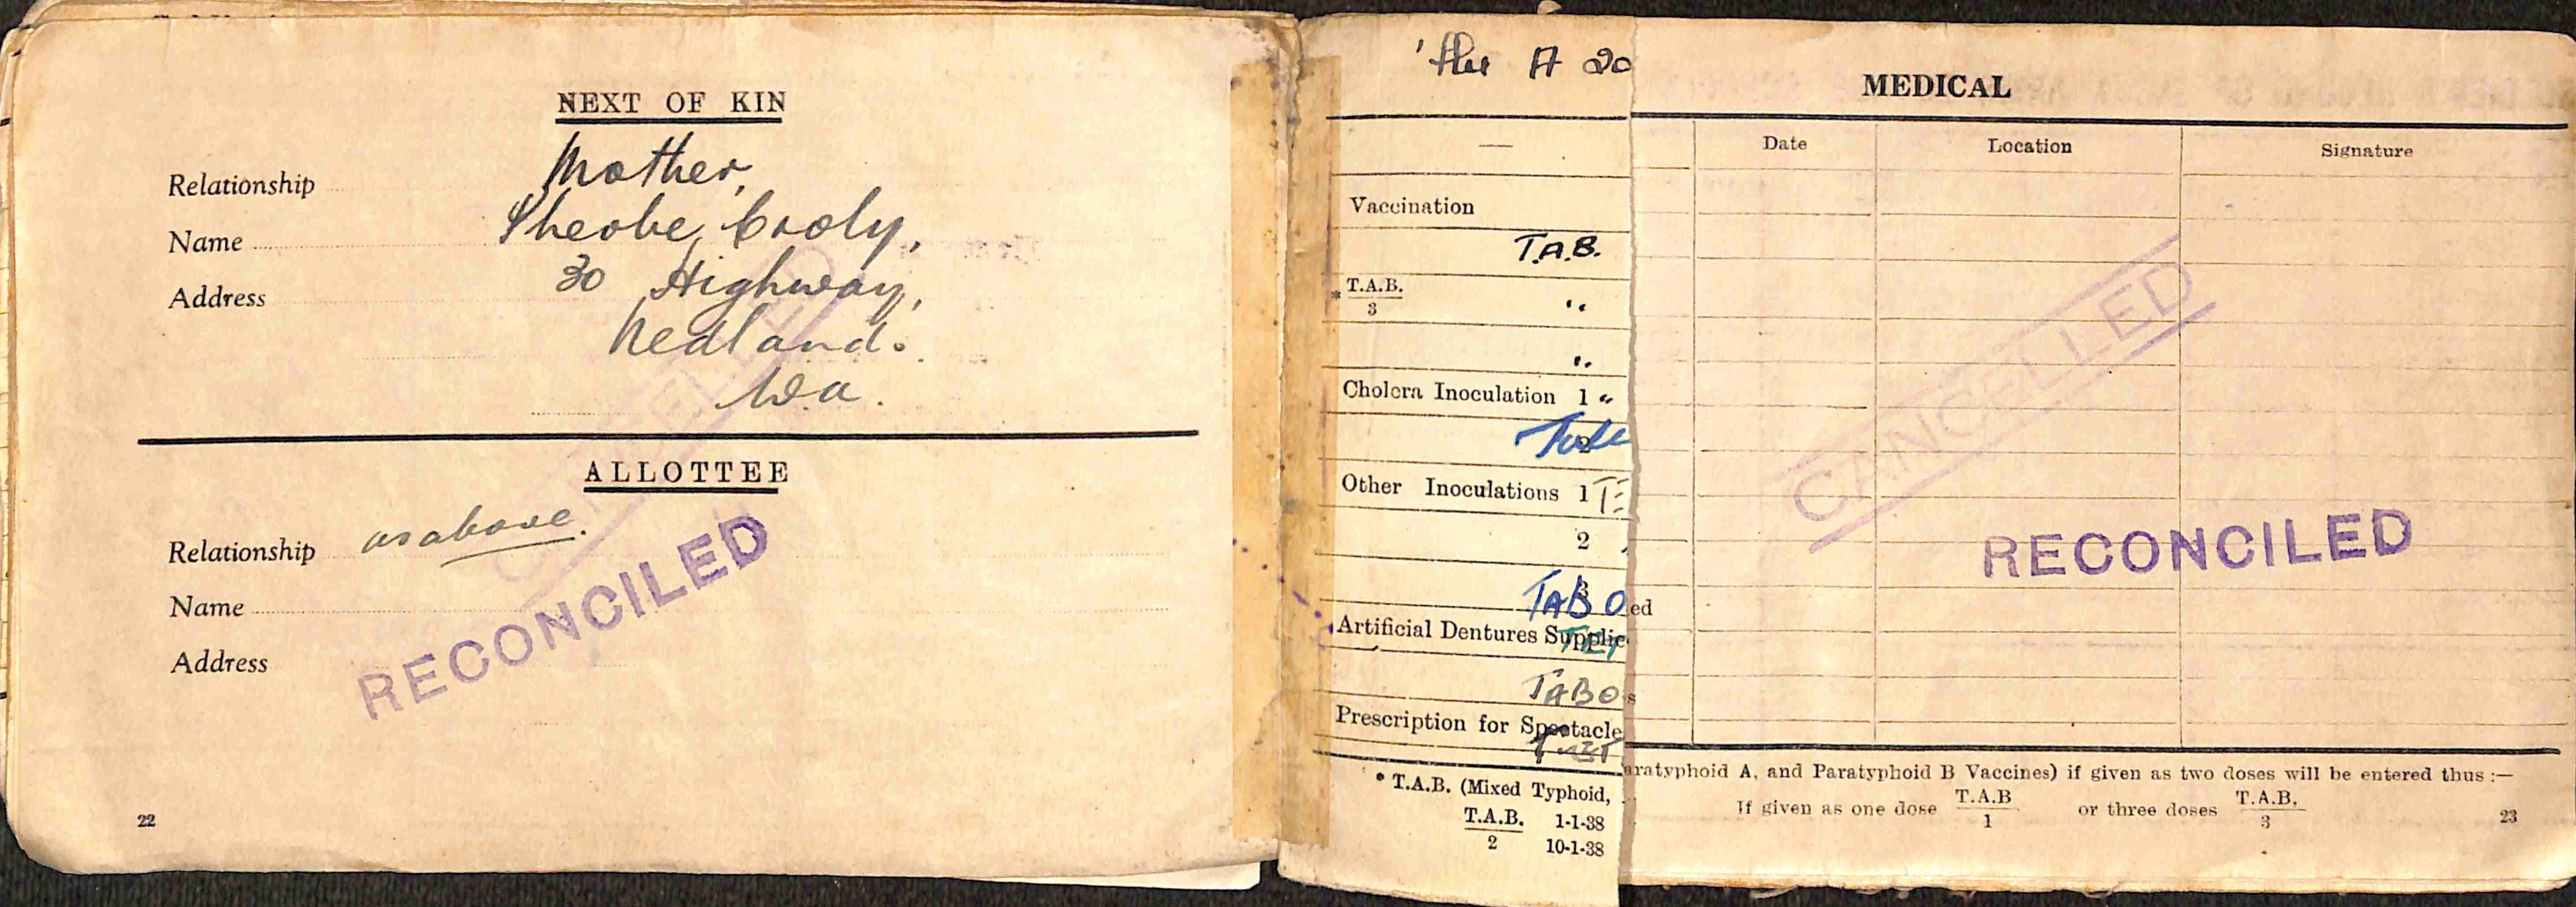 NEXT OF KIN
Relationship Mother,
Name Pheobe, Croly,
Address 30 Highway,
Nedland.
W.a.
ALLOTTEE
Relationship as above.
Name
Address
CANCELLED
RECONCILED
22
A 20
Vaccination
T.A.B.
* T.A.B. "
3
"
Cholera Inoculation 1 "
2
Other Inoculations 1 TE
2
3
TABO
Artificial Dentures Supplied
TET
TABO
Prescription for Spectacles
* T.A.B. (Mixed Typhoid,
T.A.B. 1-1-38
2 10-1-38
MEDICAL
Date Location Signature
CANCELLED
RECONCILED
aratyphoid A, and Paratyphoid B Vaccines) if given as two doses will be entered thus :—
If given as one dose T.A.B or three doses T.A.B.
1 3
23